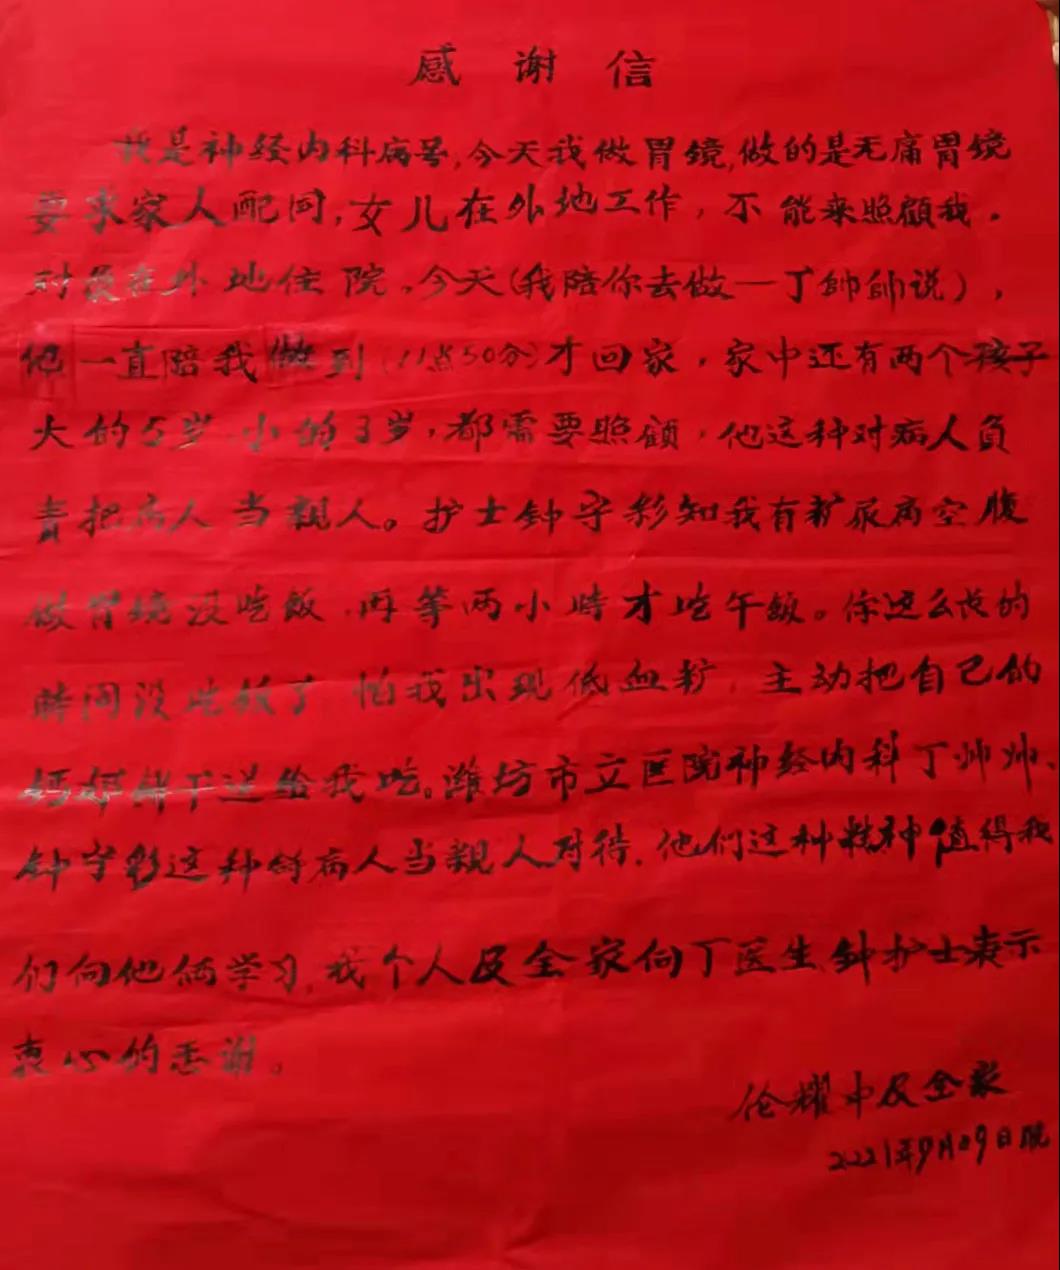 感谢信
我是神经内科病号,今天我做胃镜,做的是无痛胃镜
要求家人配同,女儿在外地工作,不能来照顧我.
对象在外地住院.今天(我陪你去做一丁帥帥说),
他一直陪我做到(11点50分)才回家,家中还有两个孩子
大的5岁.小的3岁,都需要照顧,他这种对病人負
责把病人当親人。护士钟守彩知我有糖尿病空腹
做胃镜没吃飯.再等两小時才吃午飯。你这么长的
時间没吃飯了 怕我出现低血糖,主动把自己的
钙奶餅干送给我吃。潍坊市立医院神经内科丁帅帅、
钟守彩这种對病人当親人对待,他们这种精神值得我
们向他俩学习,我个人及全家向丁医生、钟护士表示
衷心的感谢。
伦耀中及全家
2021年9月29日晚